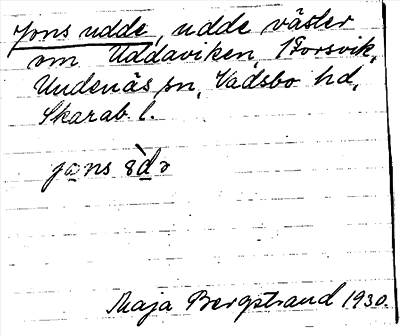 Jons udde, udde väster
om Uddaviken, Forsvik,
Undenäs sn, Vadsbo hd,
Skarab. l.
Maja Bergstrand 1930.